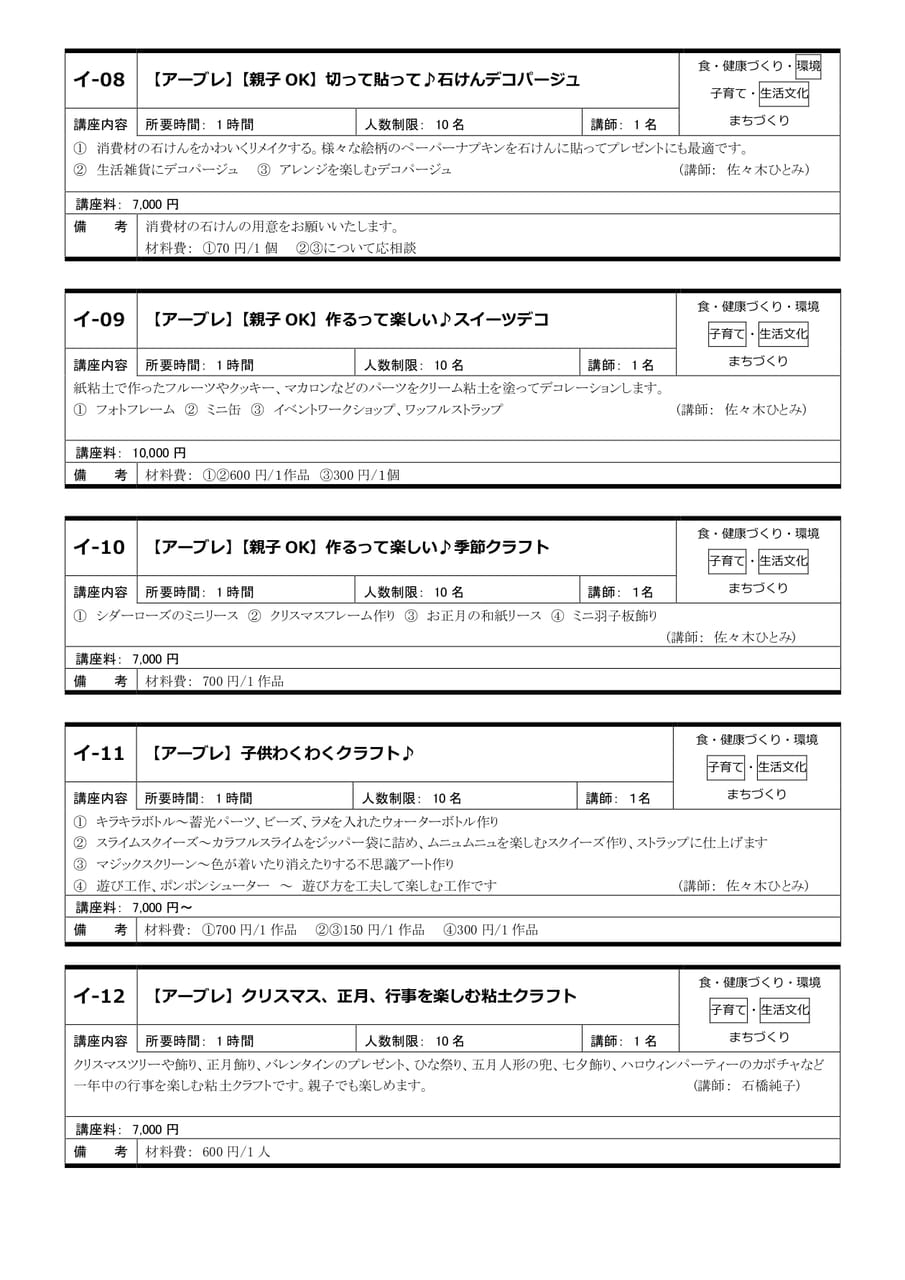 イ-08 【アーブレ】【親子 OK】切って貼って♪石けんデコパージュ
食・健康づくり・環境
子育て・生活文化
まちづくり
講座内容 所要時間： 1 時間 人数制限： 10 名 講師： 1 名
① 消費材の石けんをかわいくリメイクする。様々な絵柄のペーパーナプキンを石けんに貼ってプレゼントにも最適です。
② 生活雑貨にデコパージュ ③ アレンジを楽しむデコパージュ (講師： 佐々木ひとみ)
講座料： 7,000 円
備 考 消費材の石けんの用意をお願いいたします。
材料費： ①70 円/1 個 ②③について応相談
イ-09 【アーブレ】【親子 OK】作るって楽しい♪スイーツデコ
食・健康づくり・環境
子育て・生活文化
まちづくり
講座内容 所要時間： 1 時間 人数制限： 10 名 講師： 1 名
紙粘土で作ったフルーツやクッキー、マカロンなどのパーツをクリーム粘土を塗ってデコレーションします。
① フォトフレーム ② ミニ缶 ③ イベントワークショップ、ワッフルストラップ (講師： 佐々木ひとみ)
講座料： 10,000 円
備 考 材料費： ①②600 円/1作品 ③300 円/1個
イ-10 【アーブレ】【親子 OK】作るって楽しい♪季節クラフト
食・健康づくり・環境
子育て・生活文化
まちづくり
講座内容 所要時間： 1 時間 人数制限： 10 名 講師： 1名
① シダーローズのミニリース ② クリスマスフレーム作り ③ お正月の和紙リース ④ ミニ羽子板飾り
(講師： 佐々木ひとみ)
講座料： 7,000 円
備 考 材料費： 700 円/1 作品
イ-11 【アーブレ】子供わくわくクラフト♪
食・健康づくり・環境
子育て・生活文化
まちづくり
講座内容 所要時間： 1 時間 人数制限： 10 名 講師： 1名
① キラキラボトル～蓄光パーツ、ビーズ、ラメを入れたウォーターボトル作り
② スライムスクイーズ～カラフルスライムをジッパー袋に詰め、ムニュムニュを楽しむスクイーズ作り、ストラップに仕上げます
③ マジックスクリーン～色が着いたり消えたりする不思議アート作り
④ 遊び工作、ポンポンシューター ～ 遊び方を工夫して楽しむ工作です (講師： 佐々木ひとみ)
講座料： 7,000 円～
備 考 材料費： ①700 円/1 作品 ②③150 円/1 作品 ④300 円/1 作品
イ-12 【アーブレ】クリスマス、正月、行事を楽しむ粘土クラフト
食・健康づくり・環境
子育て・生活文化
まちづくり
講座内容 所要時間： 1 時間 人数制限： 10 名 講師： 1 名
クリスマスツリーや飾り、正月飾り、バレンタインのプレゼント、ひな祭り、五月人形の兜、七夕飾り、ハロウィンパーティーのカボチャなど
一年中の行事を楽しむ粘土クラフトです。親子でも楽しめます。 (講師： 石橋純子)
講座料： 7,000 円
備 考 材料費： 600 円/1 人